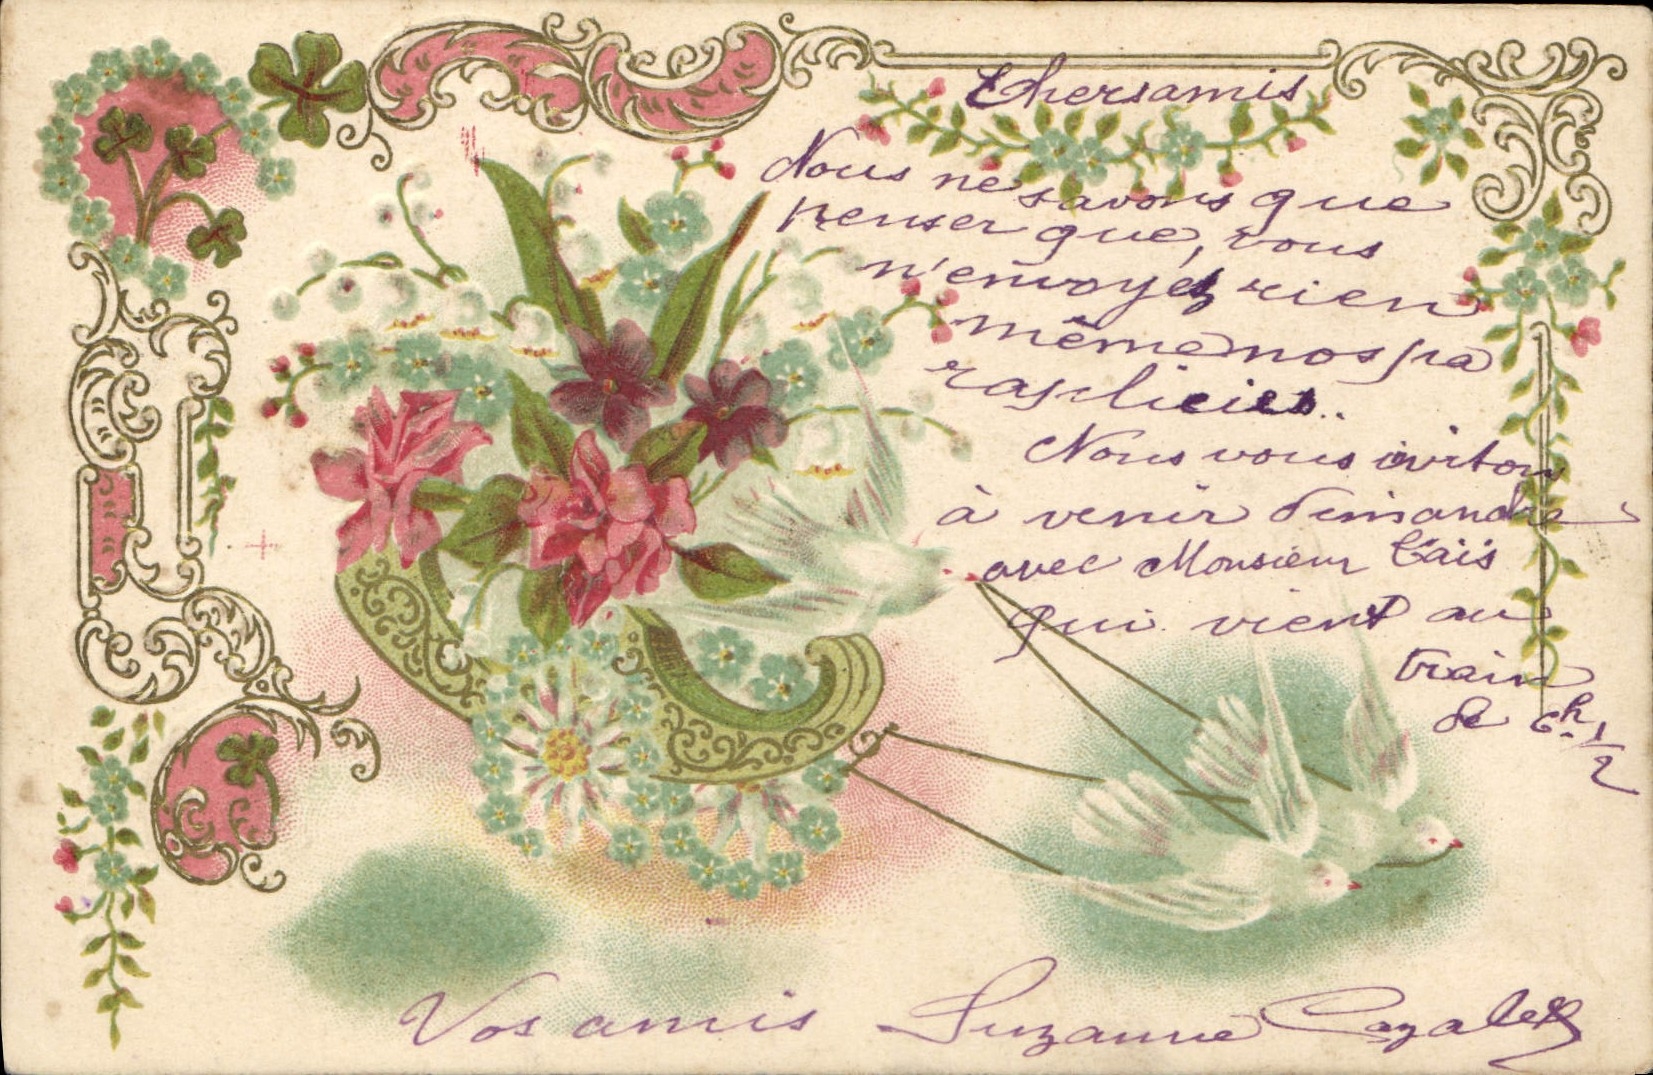 Chers amis
Nous ne savons que
penser que, vous
n'envoyez rien
même nos pa
raplicies..
Nous vous invitons
à venir dimandre
avec Monsieur Cais
qui vient au
train
de 6h 1/2
Vos amis Suzanne Cazales